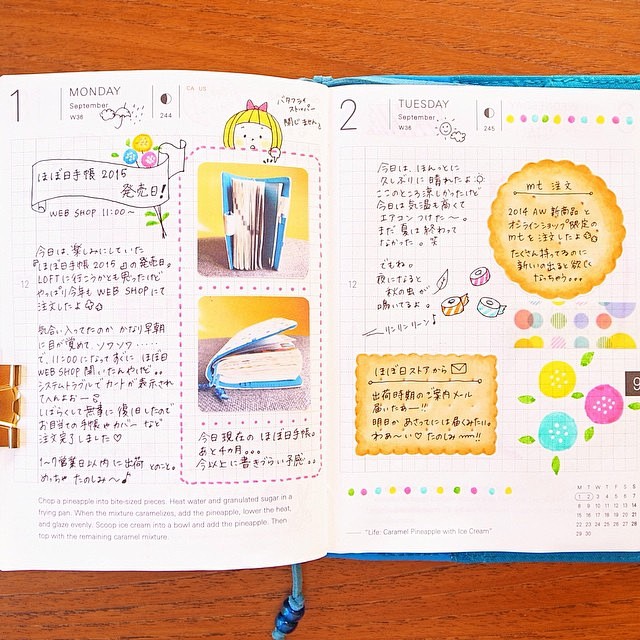 1
MONDAY
September
W36
244
バタフライ
ストッパー
閉じません
ほぼ日手帳 2015
発売日!
WEB SHOP 11:00〜
今日は、楽しみにしていた
『ほぼ日手帳 2015』の発売日。
LOFTに行こうかとも思ったけど
やっぱり今年も WEB SHOPにて
注文したよ
気合い入ってたのか かなり早朝
に目が覚めて、ソワソワ・・・・・
で、11:00になってすぐに ほぼ日
WEB SHOP 開いたんやけど…
システムトラブルでカートが表示され
てへんよおー
しばらくして無事に復旧したので
お目当ての手帳やカバーなど
注文完了しました♡
1〜7営業日以内に出荷 とのこと。
めっちゃ たのしみ〜♪
今日現在の ほぼ日手帳。
あと4ヶ月。。。
今以上に書きづらい予感。。
Chop a pineapple into bite-sized pieces. Heat water and granulated sugar in a
frying pan. When the mixture caramelizes, add the pineapple, lower the heat,
and glaze evenly. Scoop ice cream into a bowl and add the pineapple. Then
top with the remaining caramel mixture.
2
TUESDAY
September
W36
245
今日は、ほんっとに
久しぶりに晴れたよ
ここのところ涼しかったけど
今日は気温も高くて
エアコンつけた〜。
まだ夏は終わって
なかった。笑
でもね。
夜になると
秋の虫が
鳴いてるよ。
リンリンリーン♪
mt 注文
2014 AW 新商品と
オンラインショップ限定の
mtを注文したよ
たくさん持ってるのに
新しいの出ると欲しく
なっちゃう。。。
ほぼ日ストアから
出荷時期のご案内メール
届いたぁー!!
明日か あさってには届くみたい。
わぁ〜い♡たのしみ〜!!
12
12
9
M T W T F S S
1 2 3 4 5 6 7
8 9 10 11 12 13 14
15 16 17 18 19 20 21
22 23 24 25 26 27 28
29 30
"Life: Caramel Pineapple with Ice Cream"